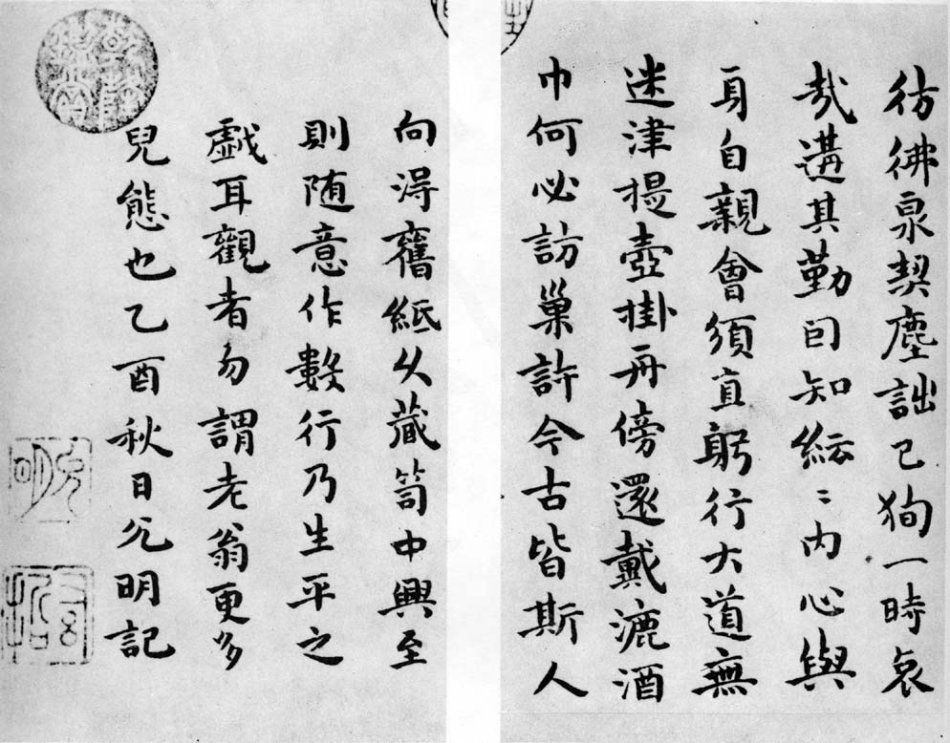 彷彿泉契塵詘己狥一時哀
哉遘其勤囙知紜〻内心與
身自親會須直躬行大道無
迷津提壺掛舟傍還戴漉酒
巾何必訪巢許今古皆斯人
向得舊紙久藏笥中興至
則随意作數行乃生平之
戯耳觀者勿謂老翁更多
兒態也乙酉秋日允明記
允明